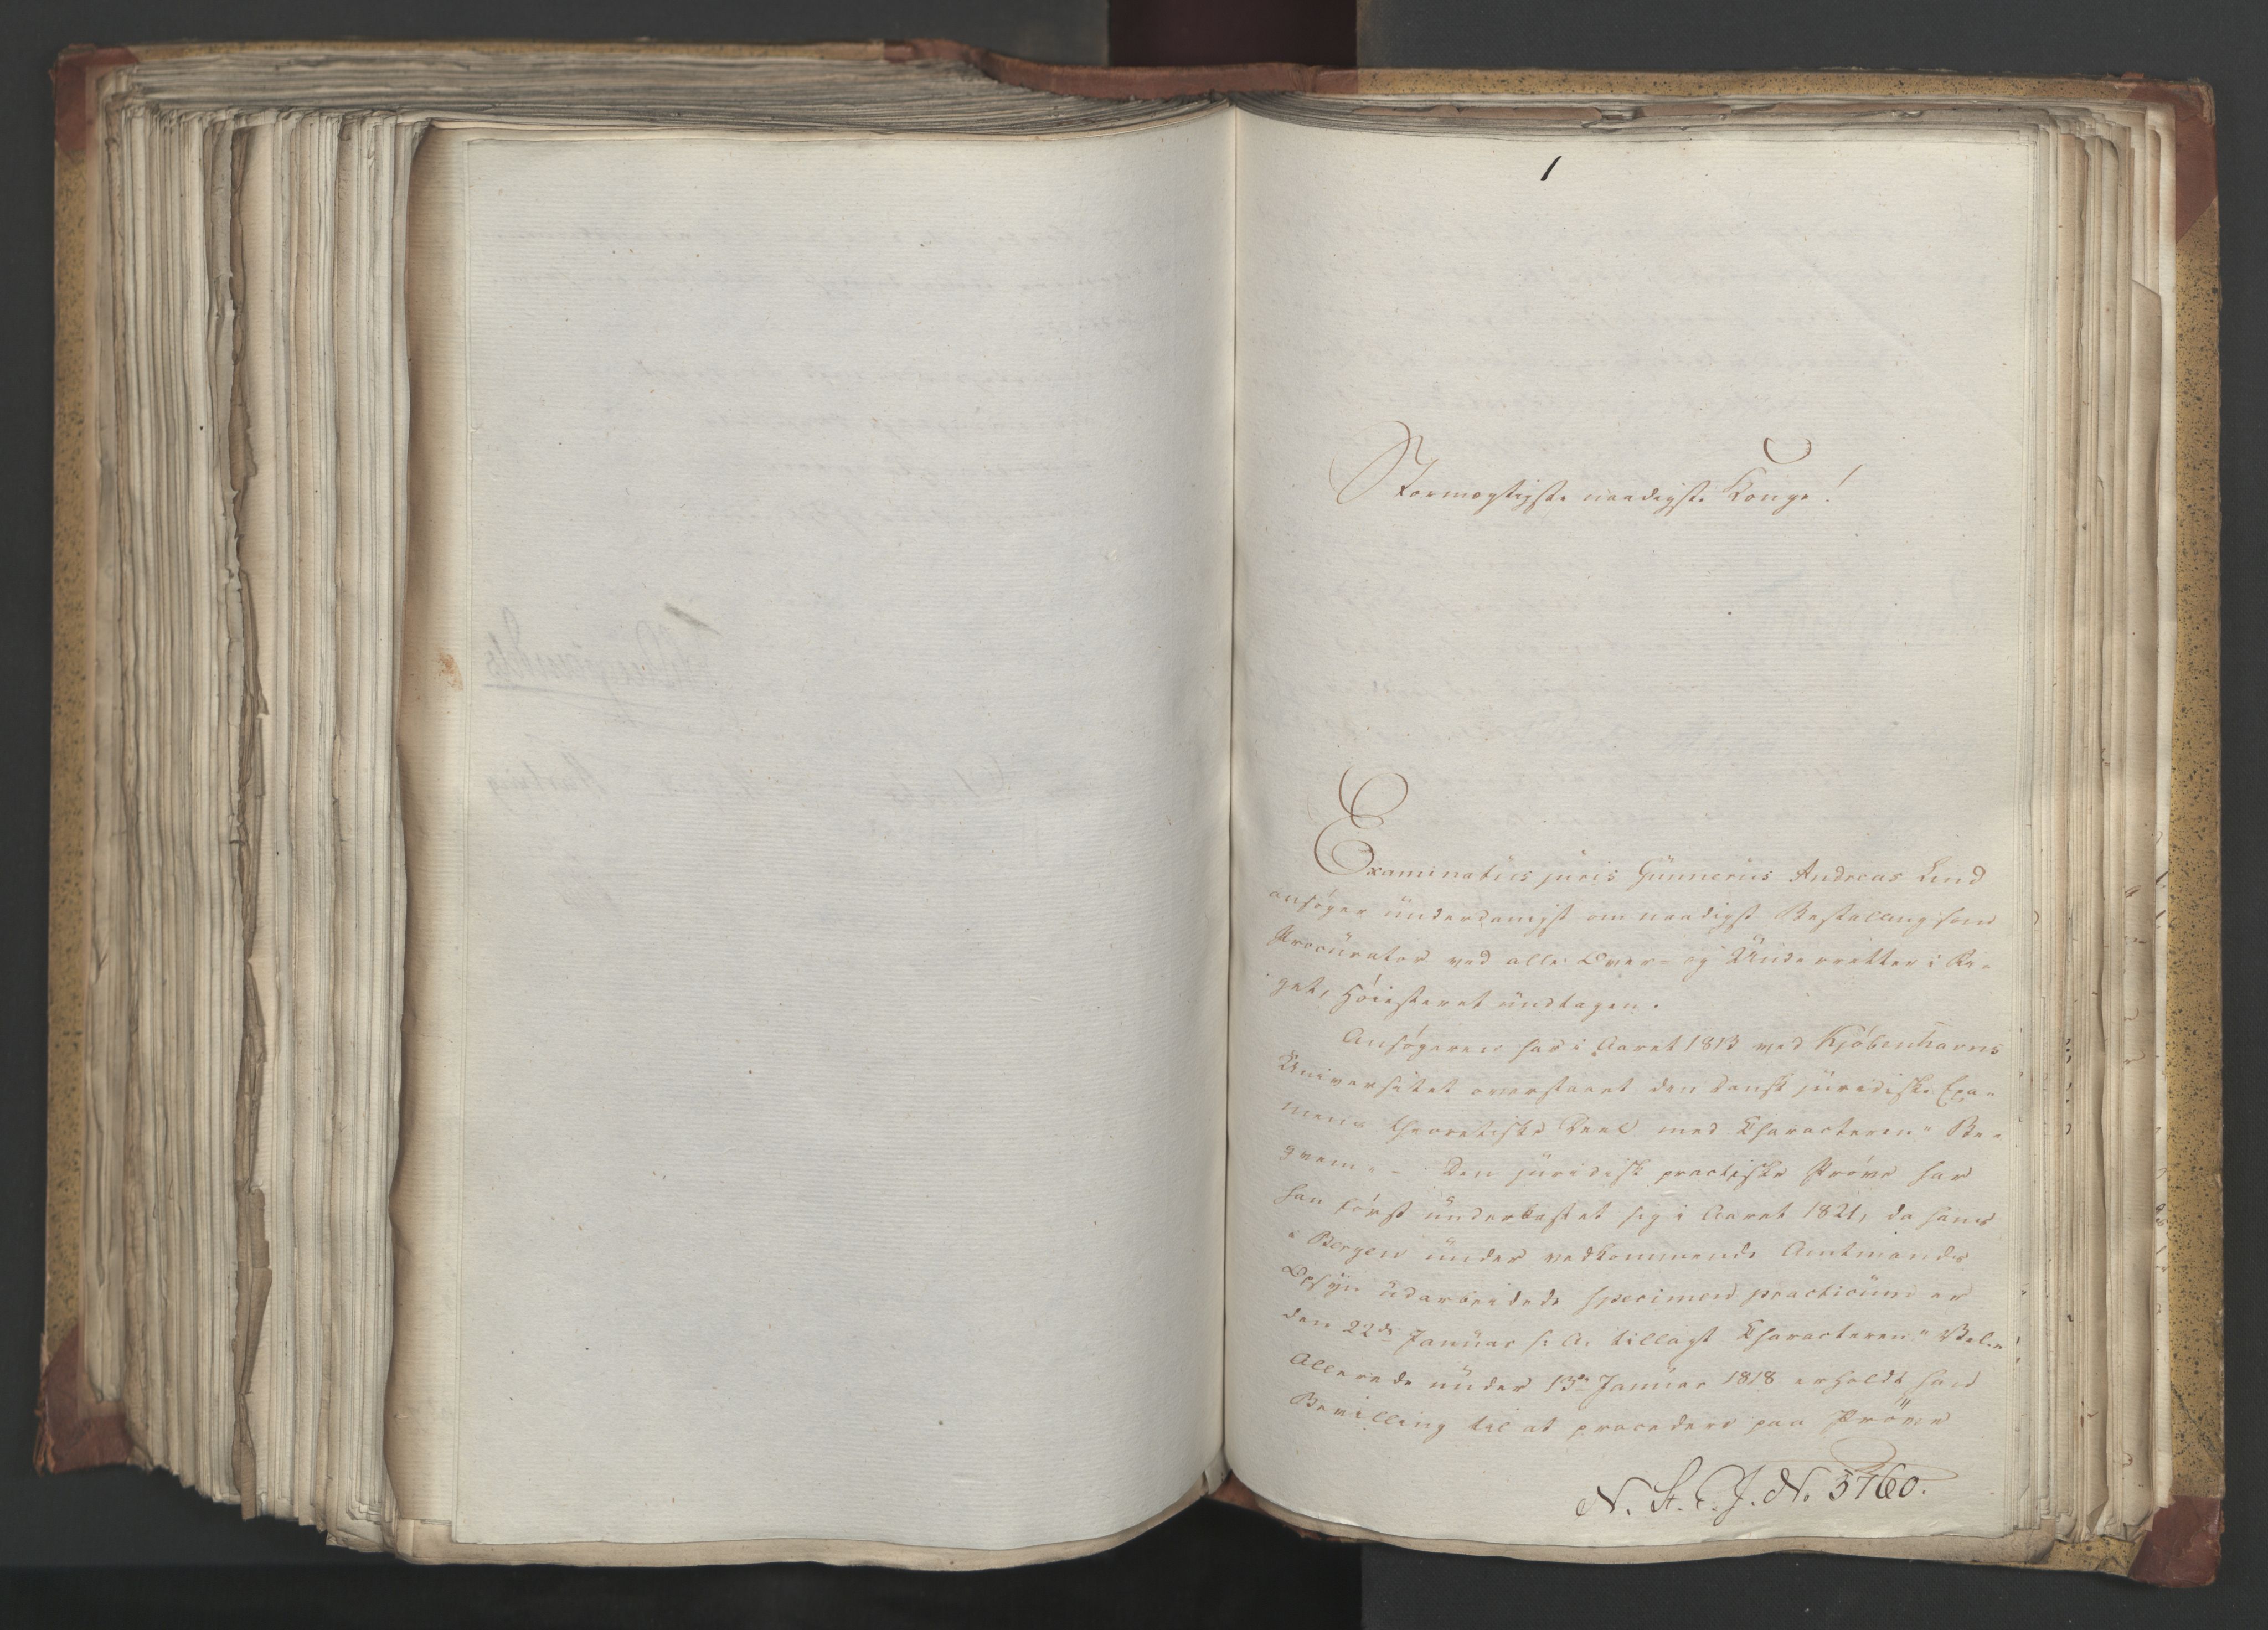 1
Stormægtigste naadigste Konge!
Examinatus juris Gunnerius Andreas Lind
ansøger underdanigst om naadigst Bestalling som
Procurator ved alle Over- og Underretter i Ri-
get, Høiesteret undtagen.
Ansøgeren har i Aaret 1813 ved Kjøbenhavns
Universitet overstaaet den dansk juridiske Exa-
mens theoretiske Deel med Characteren "Be-
qvem". - Den juridisk practiske Prøve har
han først underkastet sig i Aaret 1821, da hans
i Bergen under vedkommende Amtmands
Opsyn udarbeidede specimen practicum er
den 22de Januar s. A. tillagt Characteren "Vel."
Allerede under 13de Januar 1818 erholdt han
Bevilling til at procedere paa Prøve
N. St. C. J. No 5760.